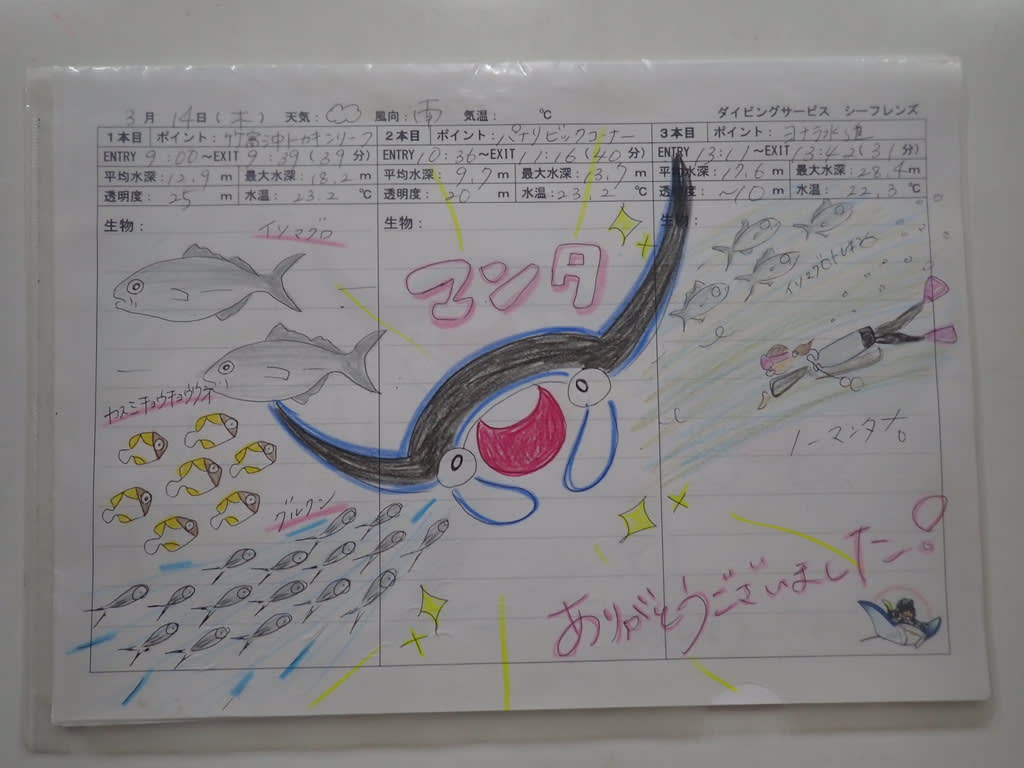 3月 14日(木) 天気: 風向:南 気温: ℃ ダイビングサービス シーフレンズ
1本目 ポイント:竹富沖トカキンリーフ 2本目 ポイント:パナリビックコーナー 3本目 ポイント:ヨナラ水道
ENTRY 9:00~EXIT 9:39(39分) ENTRY 10:36~EXIT 11:16(40分) ENTRY 13:11~EXIT 13:42(31分)
平均水深:12.9 m 最大水深:18.2 m 平均水深:9.7 m 最大水深:13.7 m 平均水深:17.6 m 最大水深:28.4 m
透明度: 25 m 水温:23.2 ℃ 透明度: 20 m 水温:23.2 ℃ 透明度: ~10 m 水温: 22.3 ℃
生物: 生物: 生物:
イソマグロ
マンタ
カスミチョウチョウウオ
ノーマンタ
グルクン
ありがとうございました。